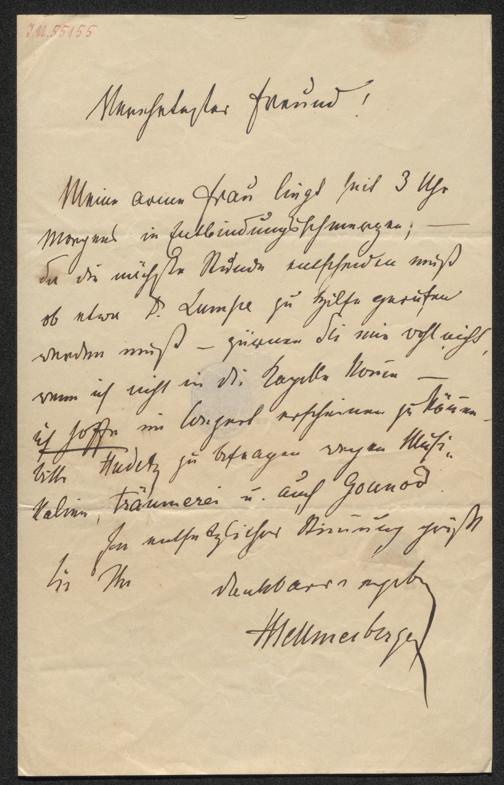 J.N. 95155
Verehrtester Freund!
Meine arme Frau liegt seit 3 Uhr
Morgens in Entbindungsschmerzen; —
da die nächste Stunde entscheiden muß
ob etwa D. Lumpe zu Hilfe gerufen
werden muß — zürnen Sie mir wohl nicht,
wenn ich nicht in die Kapelle komme —
ich hoffe im Conzert erscheinen zu können.
bitte zu befragen wegen Musi-
kalien, Träumerei u. auch Gounod.
In entsetzlicher Stimmung grüßt
Sie Ihr dankbarst ergeb
Hellmesberger